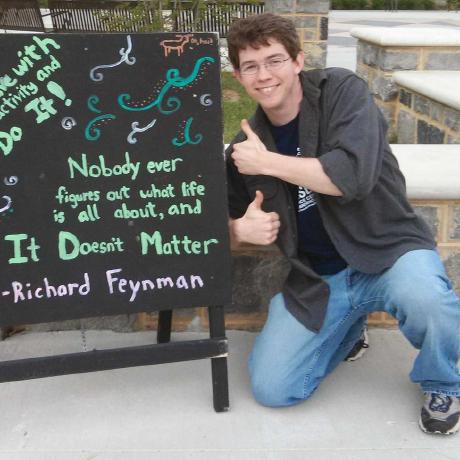 ve with
activity and
Do It!
oh, hai!
Nobody ever
figures out what life
is all about, and
It Doesn't Matter
-Richard Feynman